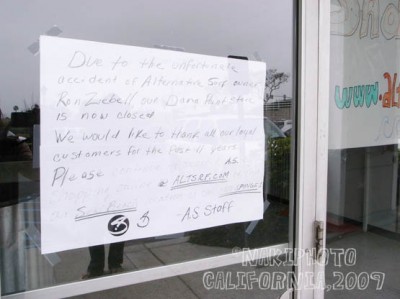 Due to the unfortunate
accident of Alternative Surf owner
Ron Zebell our Dana Point store
is now closed
We would like to thank all our loyal
customers for the past 11 years.
Please
A.S.
ALTSRF.COM
-AS Staff
SHO
www.al
©NIKIPHOTO
CALIFORNIA, 2009